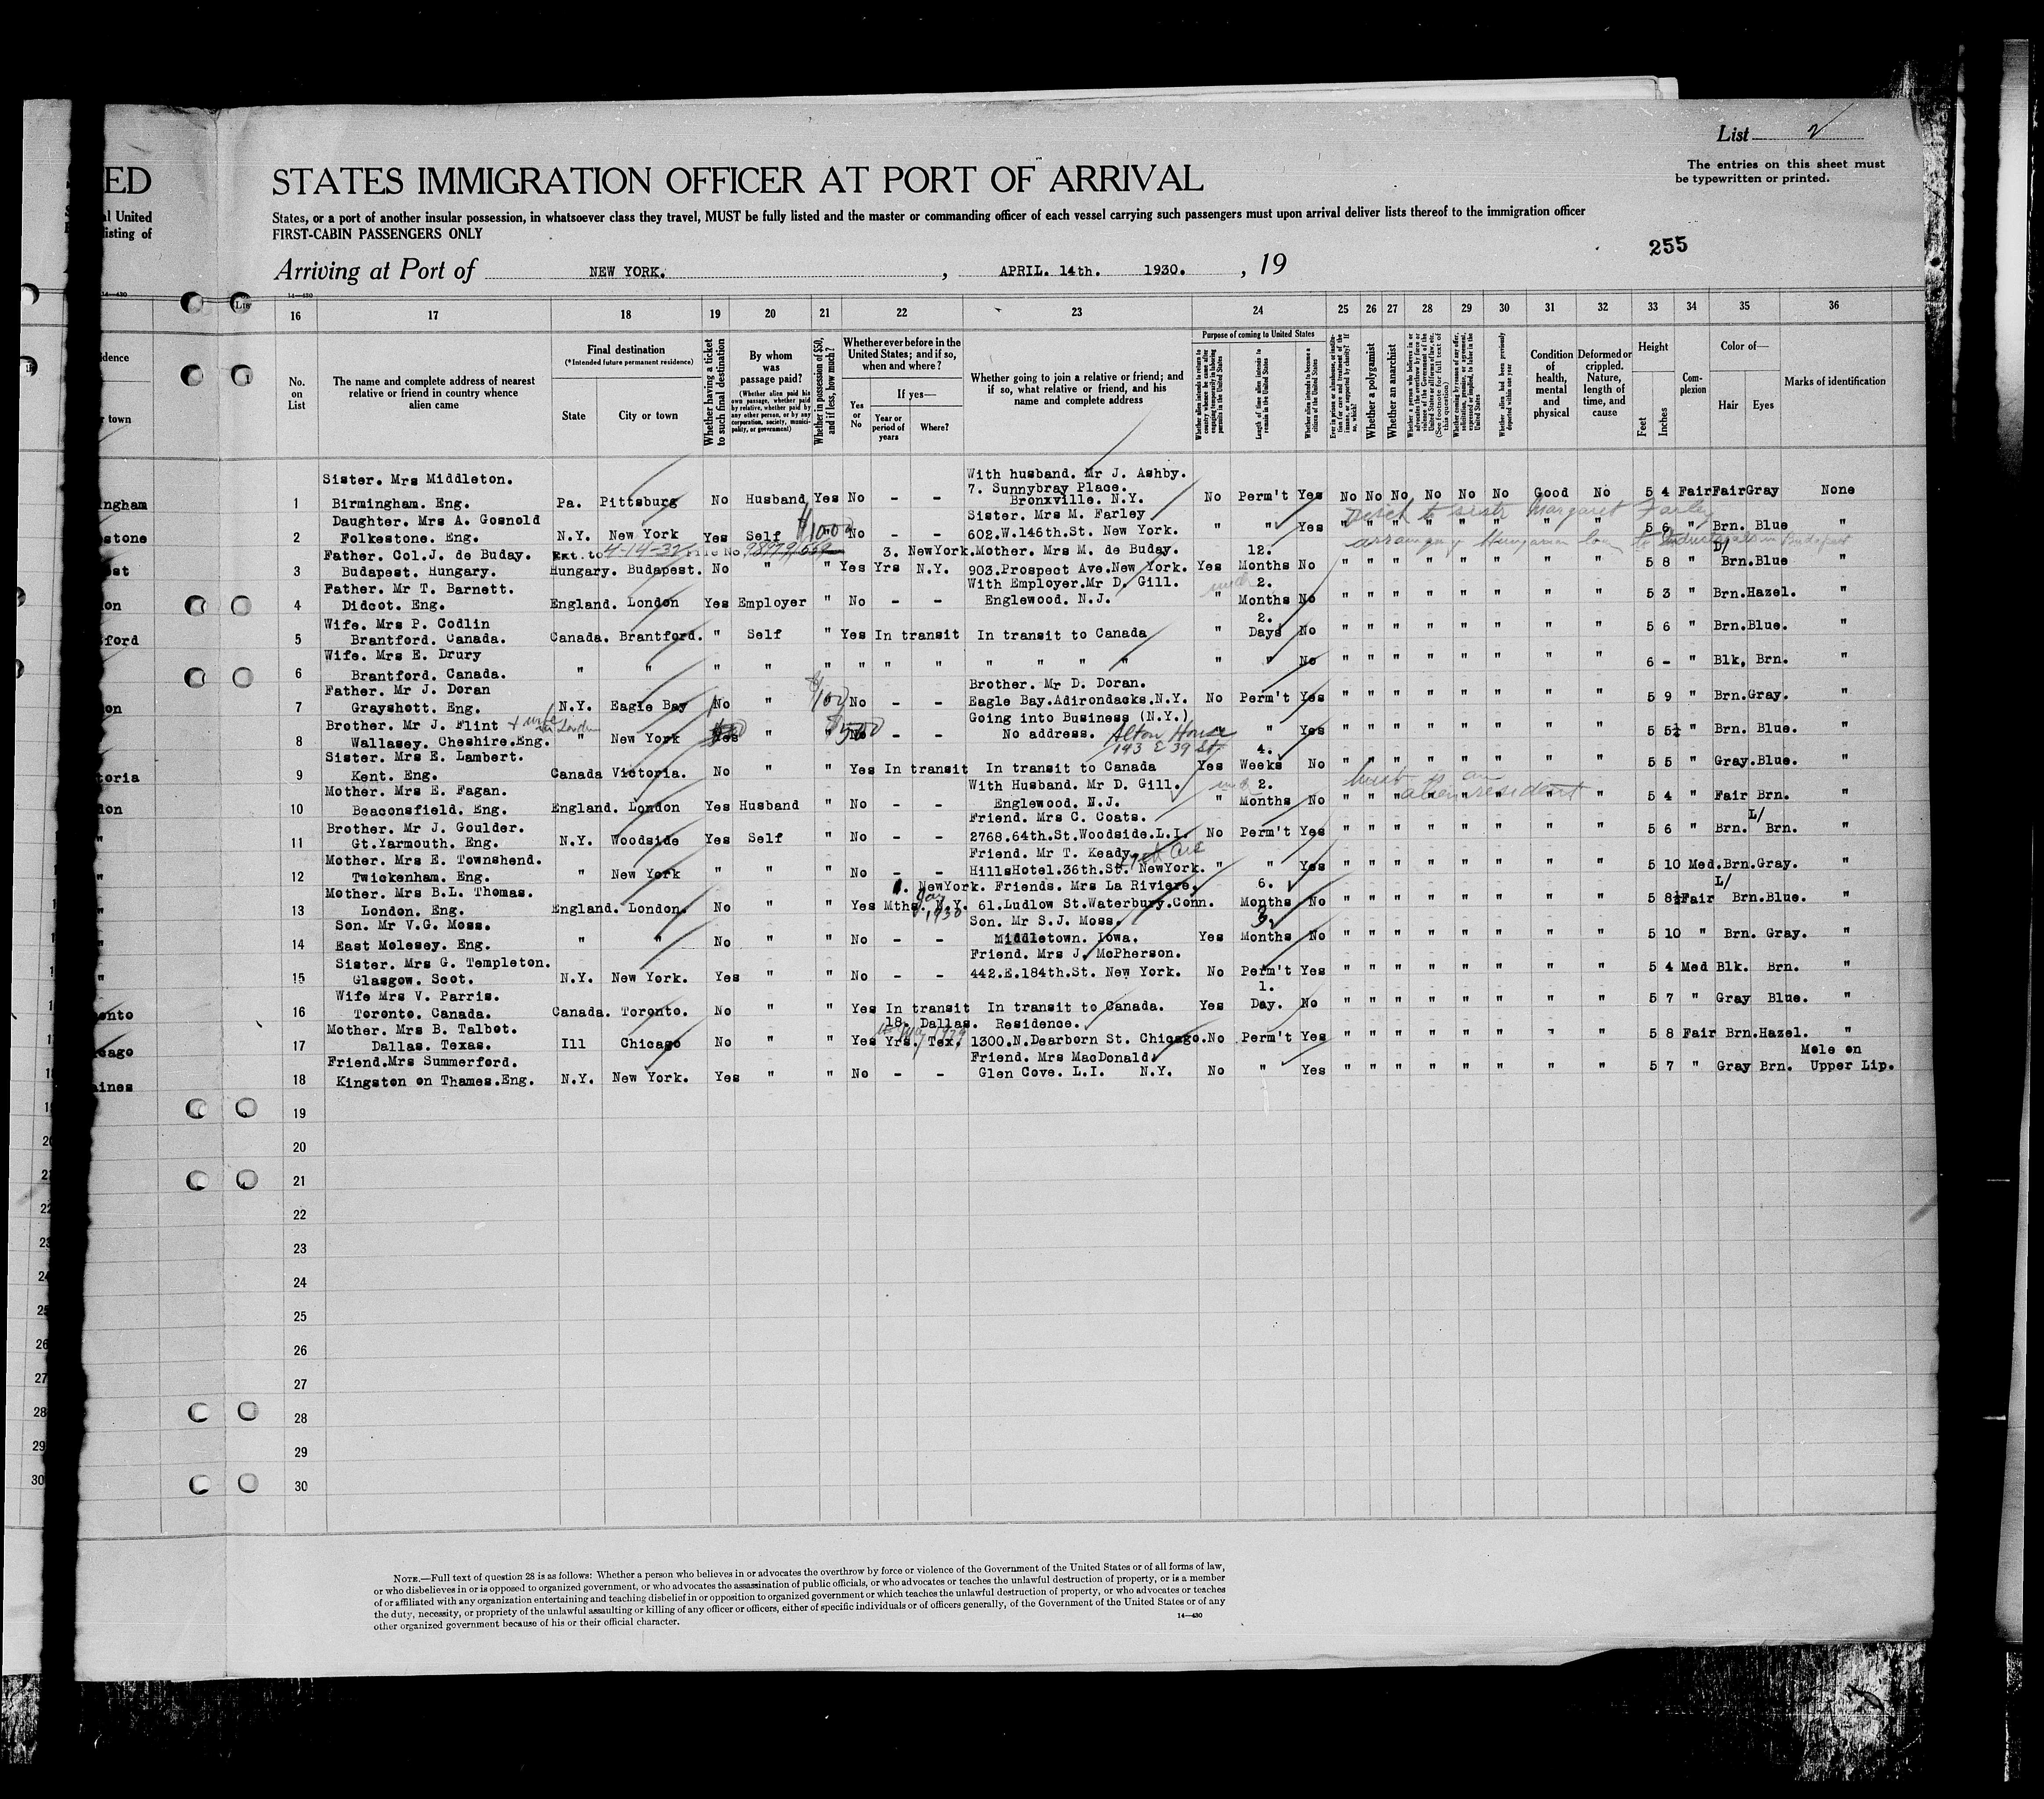 List 2
The entries on this sheet must
be typewritten or printed.
ED
STATES IMMIGRATION OFFICER AT PORT OF ARRIVAL
al United
listing of
States, or a port of another insular possession, in whatsoever class they travel, MUST be fully listed and the master or commanding officer of each vessel carrying such passengers must upon arrival deliver lists thereof to the immigration officer
FIRST-CABIN PASSENGERS ONLY
255
Arriving at Port of NEW YORK. , APRIL. 14th. 1930. , 19
14—430
16 17 18 19 20 21 22 23 24 25 26 27 28 29 30 31 32 33 34 35 36
No. on List
The name and complete address of nearest relative or friend in country whence alien came
Final destination
(*Intended future permanent residence)
State
City or town
Whether having a ticket to such final destination
By whom was passage paid?
(Whether alien paid his own passage, whether paid by relative, whether paid by any other person, or by any corporation, society, municipality, or government)
Whether in possession of $50, and if less, how much?
Whether ever before in the United States; and if so, when and where?
Yes or No
If yes—
Year or period of years
Where?
Whether going to join a relative or friend; and if so, what relative or friend, and his name and complete address
Purpose of coming to United States
Whether alien intends to return to country whence he came after engaging temporarily in laboring pursuits in the United States
Length of time alien intends to remain in the United States
Whether alien intends to become a citizen of the United States
Whether a polygamist
Whether an anarchist
Whether alien had been previously deported within one year
Condition of health, mental and physical
Deformed or crippled. Nature, length of time, and cause
Height
Feet
Inches
Complexion
Color of—
Hair
Eyes
Marks of identification
Sister. Mrs Middleton. With husband. Mr J. Ashby.
7. Sunnybray Place.
1 Birmingham. Eng. Pa. Pittsburg No Husband Yes No - - Bronxville. N.Y. No Perm't Yes No No No No No No Good No 5 4 Fair Fair Gray None
Daughter. Mrs A. Gosnold Sister. Mrs M. Farley
2 Folkestone. Eng. N.Y. New York Yes Self $1000 No - - 602.W.146th.St. New York. " " Yes " " " " " " " " 5 6 " Brn. Blue "
Father. Col.J. de Buday. Ext. to 4-14-32 File No. 3. NewYork. Mother. Mrs M. de Buday. 12.
3 Budapest. Hungary. Hungary. Budapest. No " " Yes Yrs N.Y. 903.Prospect Ave.New York. Yes Months No " " " " " " " " 5 8 " Brn.Blue "
Father. Mr T. Barnett. With Employer.Mr D. Gill. 2.
4 Didcot. Eng. England. London Yes Employer " No - - Englewood. N.J. " Months No " " " " " " " " 5 3 " Brn.Hazel. "
Wife. Mrs P. Codlin 2.
5 Brantford. Canada. Canada. Brantford. " Self " Yes In transit In transit to Canada " Days No " " " " " " " " 5 6 " Brn.Blue. "
Wife. Mrs E. Drury
6 Brantford. Canada. " " " " " " " " " " " " " " No " " " " " " " " 6 - " Blk. Brn. "
Father. Mr J. Doran $100 Brother. Mr D. Doran.
7 Grayshott. Eng. N.Y. Eagle Bay No " No - - Eagle Bay.Adirondacks.N.Y. No Perm't Yes " " " " " " " " 5 9 " Brn.Gray. "
Brother. Mr J. Flint + wife in London $500 Going into Business (N.Y.)
8 Wallasey. Cheshire.Eng. " New York Yes " " No - - No address. Alton House " " Yes " " " " " " " " 5 5½ " Brn. Blue. "
143 E 39 St.
Sister. Mrs E. Lambert. 4.
9 Kent. Eng. Canada Victoria. No " " Yes In transit In transit to Canada Yes Weeks No " " " " " " " " 5 5 " Gray.Blue. "
Mother. Mrs E. Fagan. With Husband. Mr D. Gill. 2.
10 Beaconsfield. Eng. England. London Yes Husband " No - - Englewood. N.J. " Months No " " " " " " " " 5 4 " Fair Brn. "
Brother. Mr J. Goulder. Friend. Mrs C. Coats. L/
11 Gt.Yarmouth. Eng. N.Y. Woodside Yes Self " No - - 2768.64th.St.Woodside.L.I. No Perm't Yes " " " " " " " " 5 6 " Brn. Brn. "
Mother. Mrs E. Townshend. Friend. Mr T. Keady.
12 Twickenham. Eng. " New York " " " No - - HillsHotel.36th.St. NewYork. " " Yes " " " " " " " " 5 10 Med.Brn.Gray. "
Mother. Mrs B.L. Thomas. NewYork. Friends. Mrs La Riviere. 6. L/
13 London. Eng. England. London. No " " Yes Mths. N.Y. 1930 61.Ludlow St.Waterbury.Conn. Months No " " " " " " " " 5 8½ Fair Brn.Blue. "
Son. Mr V.G. Moss. Son. Mr S.J. Moss. 3.
14 East Molesey. Eng. " " No " " No - - Middletown. Iowa. Yes Months No " " " " " " " " 5 10 " Brn. Gray. "
Sister. Mrs G. Templeton. Friend. Mrs J. McPherson.
15 Glasgow. Scot. N.Y. New York. Yes " " No - - 442.E.184th.St. New York. No Perm't Yes " " " " " " " " 5 4 Med Blk. Brn. "
Wife Mrs V. Parris. 1.
16 Toronto. Canada. Canada. Toronto. No " " Yes In transit In transit to Canada. Yes Day. No " " " " " " " " 5 7 " Gray Blue. "
Mother. Mrs B. Talbot. 18. Dallas. Residence.
17 Dallas. Texas. Ill Chicago No " " Yes Yrs. Tex. 1300.N.Dearborn St. Chicago. No Perm't Yes " " " " " " " " 5 8 Fair Brn.Hazel. "
Friend.Mrs Summerford. Friend. Mrs MacDonald. Mole on
18 Kingston on Thames.Eng. N.Y. New York. Yes " " No - - Glen Cove. L.I. N.Y. No " Yes " " " " " " " " 5 7 " Gray Brn. Upper Lip.
19
20
21
22
23
24
25
26
27
28
29
30
NOTE.—Full text of question 28 is as follows: Whether a person who believes in or advocates the overthrow by force or violence of the Government of the United States or of all forms of law,
or who disbelieves in or is opposed to organized government, or who advocates the assassination of public officials, or who advocates or teaches the unlawful destruction of property, or is a member
of or affiliated with any organization entertaining and teaching disbelief in or opposition to organized government or which teaches the unlawful destruction of property, or who advocates or teaches
the duty, necessity, or propriety of the unlawful assaulting or killing of any officer or officers, either of specific individuals or of officers generally, of the Government of the United States or of any
other organized government because of his or their official character.
14—430